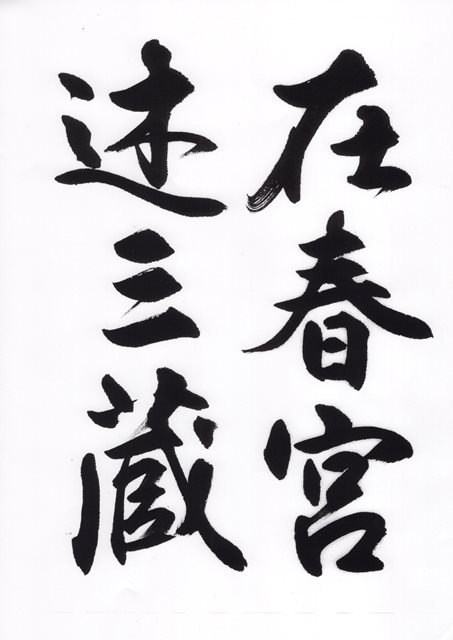 在春宮
述三蔵